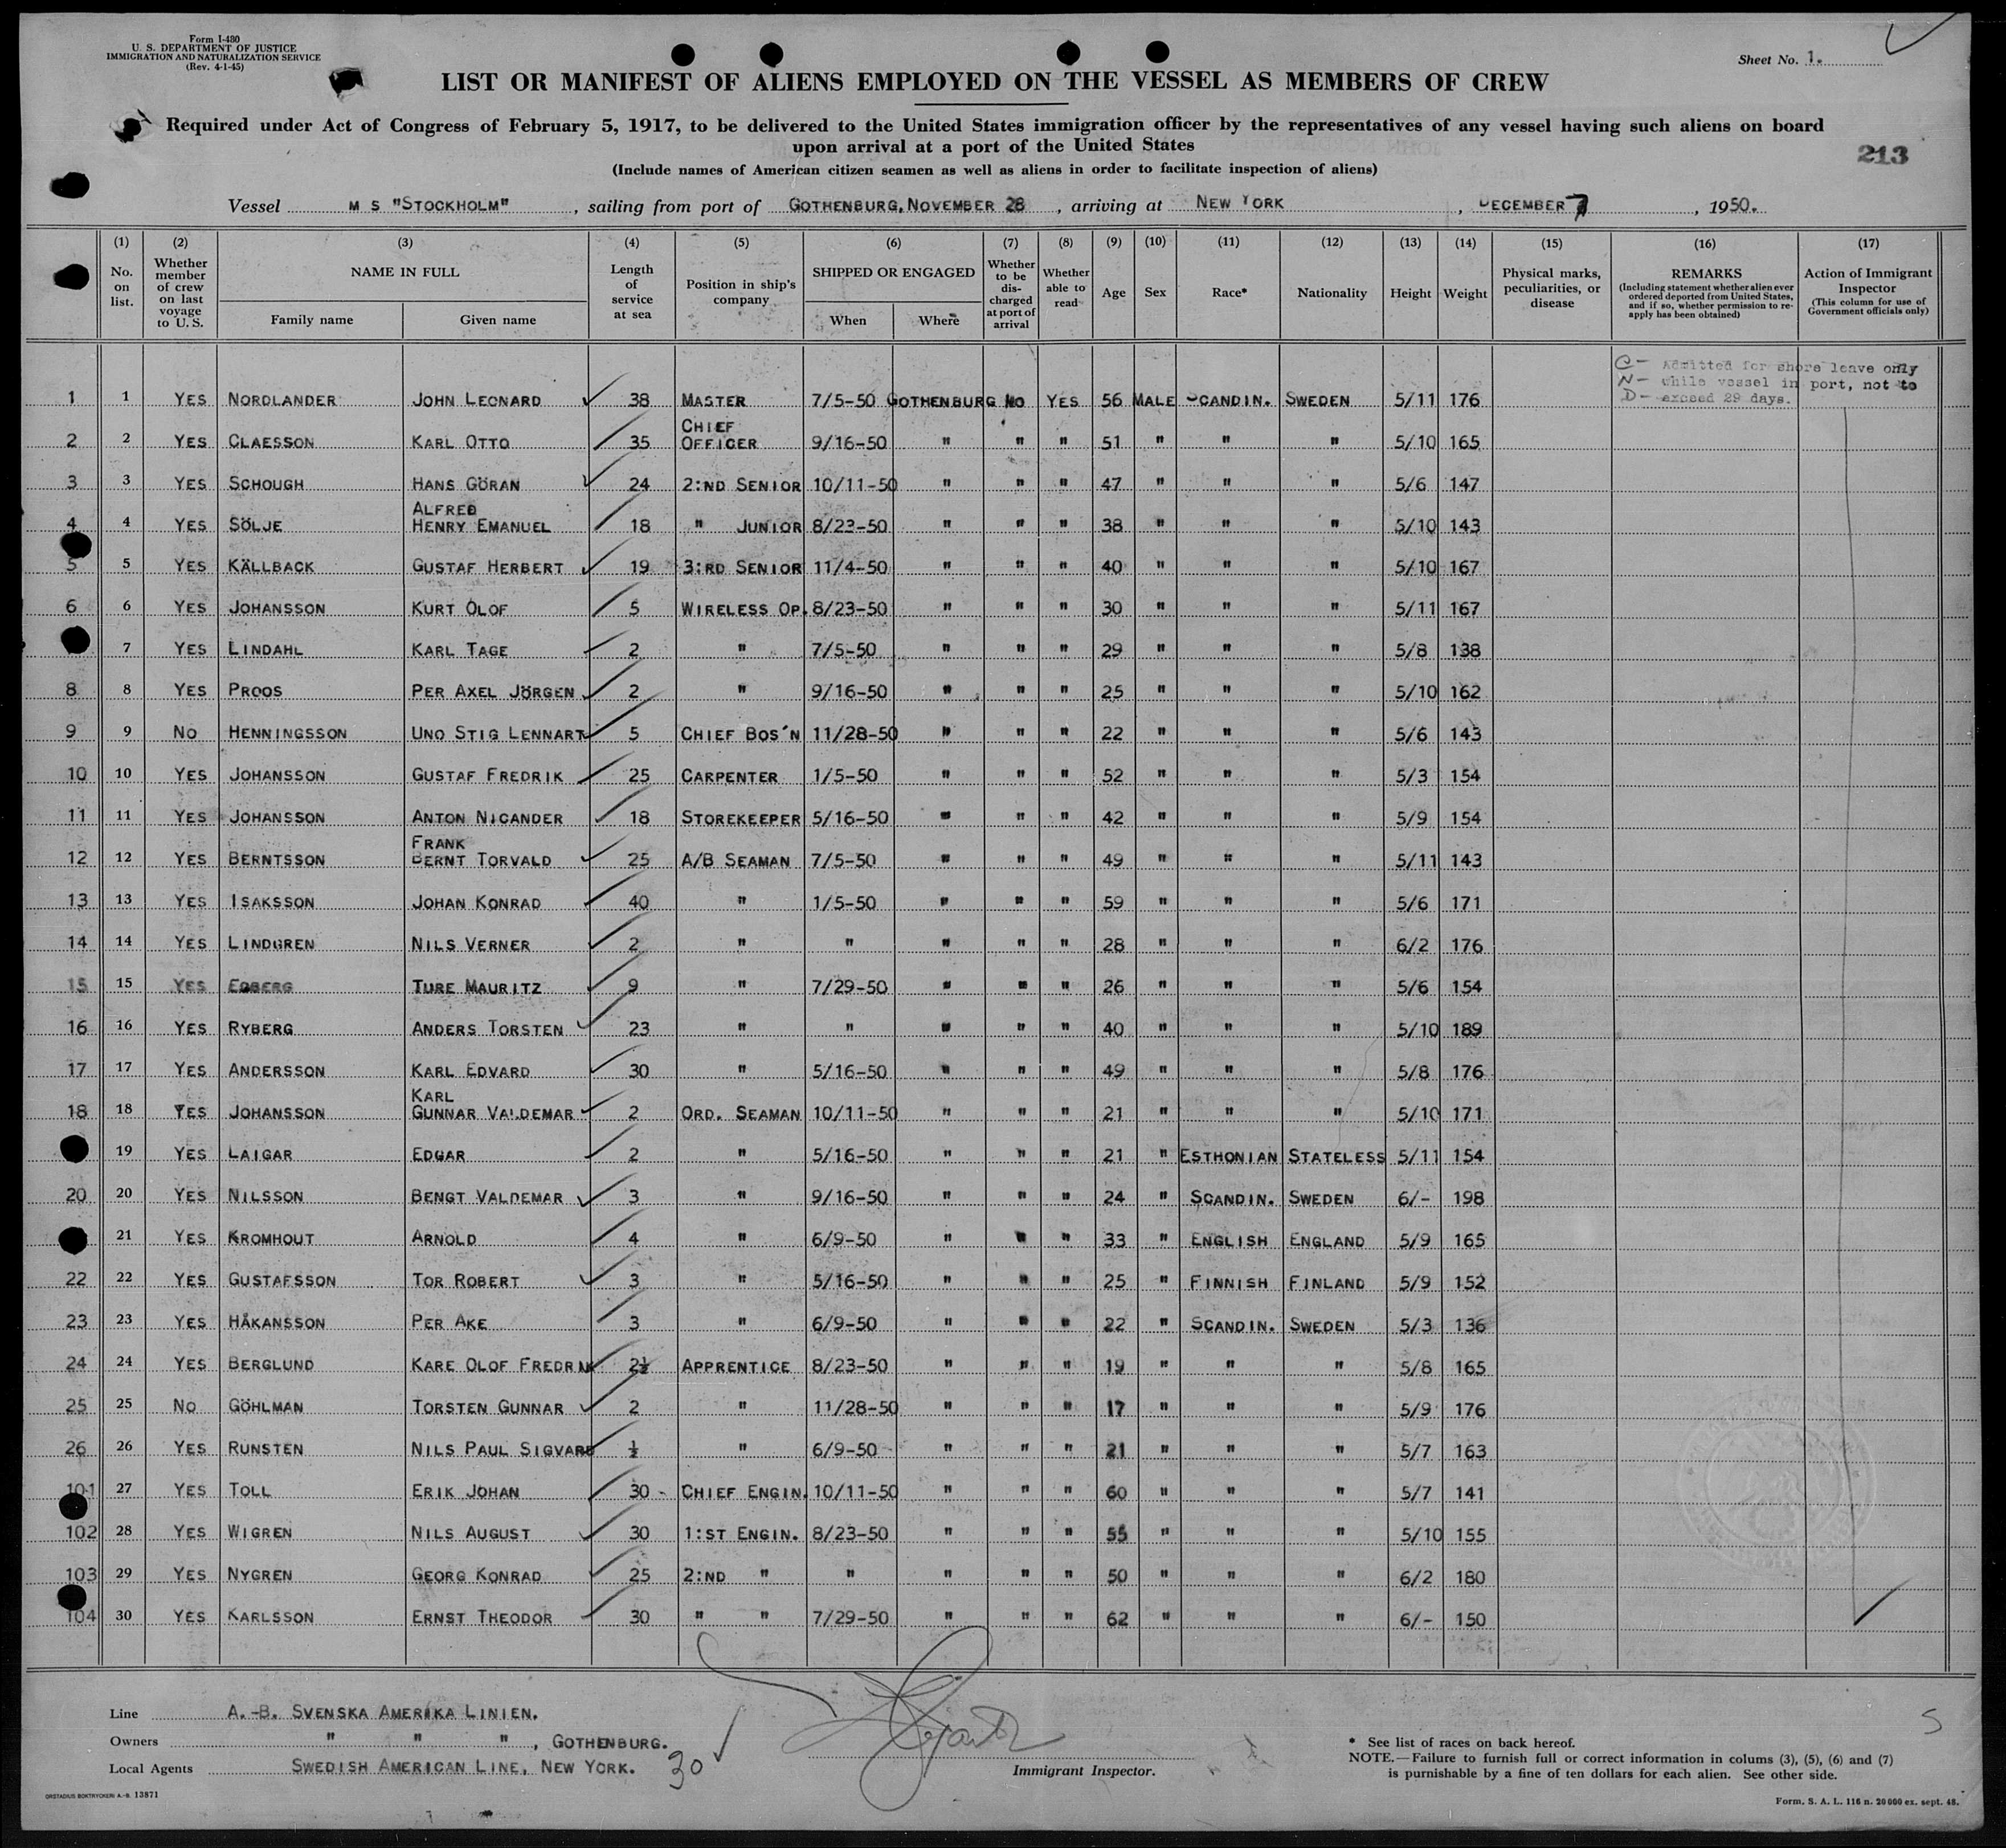 Form I-480
U. S. DEPARTMENT OF JUSTICE
IMMIGRATION AND NATURALIZATION SERVICE
(Rev. 4-1-45)
Sheet No. 1.
LIST OR MANIFEST OF ALIENS EMPLOYED ON THE VESSEL AS MEMBERS OF CREW
Required under Act of Congress of February 5, 1917, to be delivered to the United States immigration officer by the representatives of any vessel having such aliens on board
upon arrival at a port of the United States
213
(Include names of American citizen seamen as well as aliens in order to facilitate inspection of aliens)
Vessel M S "STOCKHOLM", sailing from port of GOTHENBURG, NOVEMBER 28, arriving at NEW YORK, DECEMBER 7, 1950.
(1) (2) (3) (4) (5) (6) (7) (8) (9) (10) (11) (12) (13) (14) (15) (16) (17)
No. on list. Whether member of crew on last voyage to U. S. NAME IN FULL Family name Given name Length of service at sea Position in ship's company SHIPPED OR ENGAGED When Where Whether to be discharged at port of arrival Whether able to read Age Sex Race* Nationality Height Weight Physical marks, peculiarities, or disease REMARKS (Including statement whether alien ever ordered deported from United States, and if so, whether permission to reapply has been obtained) Action of Immigrant Inspector (This column for use of Government officials only)
C- Admitted for shore leave only
N- while vessel in port, not to
D- exceed 29 days.
1 1 YES NORDLANDER JOHN LEONARD 38 MASTER 7/5-50 GOTHENBURG NO YES 56 MALE SCANDIN. SWEDEN 5/11 176
2 2 YES CLAESSON KARL OTTO 35 CHIEF OFFICER 9/16-50 " " " 51 " " " 5/10 165
3 3 YES SCHOUGH HANS GÖRAN 24 2:ND SENIOR 10/11-50 " " " 47 " " " 5/6 147
4 4 YES SÖLJE ALFRED HENRY EMANUEL 18 " JUNIOR 8/23-50 " " " 38 " " " 5/10 143
5 5 YES KÄLLBACK GUSTAF HERBERT 19 3:RD SENIOR 11/4-50 " " " 40 " " " 5/10 167
6 6 YES JOHANSSON KURT OLOF 5 WIRELESS OP. 8/23-50 " " " 30 " " " 5/11 167
7 YES LINDAHL KARL TAGE 2 " 7/5-50 " " " 29 " " " 5/8 138
8 8 YES PROOS PER AXEL JÖRGEN 2 " 9/16-50 " " " 25 " " " 5/10 162
9 9 NO HENNINGSSON UNO STIG LENNART 5 CHIEF BOS'N 11/28-50 " " " 22 " " " 5/6 143
10 10 YES JOHANSSON GUSTAF FREDRIK 25 CARPENTER 1/5-50 " " " 52 " " " 5/3 154
11 11 YES JOHANSSON ANTON NICANDER 18 STOREKEEPER 5/16-50 " " " 42 " " " 5/9 154
12 12 YES BERNTSSON FRANK BERNT TORVALD 25 A/B SEAMAN 7/5-50 " " " 49 " " " 5/11 143
13 13 YES ISAKSSON JOHAN KONRAD 40 " 1/5-50 " " " 59 " " " 5/6 171
14 14 YES LINDGREN NILS VERNER 2 " " " " " 28 " " " 6/2 176
15 15 YES TURE MAURITZ 9 " 7/29-50 " " " 26 " " " 5/6 154
16 16 YES RYBERG ANDERS TORSTEN 23 " " " " " 40 " " " 5/10 189
17 17 YES ANDERSSON KARL EDVARD 30 " 5/16-50 " " " 49 " " " 5/8 176
18 18 YES JOHANSSON KARL GUNNAR VALDEMAR 2 ORD. SEAMAN 10/11-50 " " " 21 " " " 5/10 171
19 YES LAIGAR EDGAR 2 " 5/16-50 " " " 21 " ESTHONIAN STATELESS 5/11 154
20 20 YES NILSSON BENGT VALDEMAR 3 " 9/16-50 " " " 24 " SCANDIN. SWEDEN 6/- 198
21 YES KROMHOUT ARNOLD 4 " 6/9-50 " " " 33 " ENGLISH ENGLAND 5/9 165
22 22 YES GUSTAFSSON TOR ROBERT 3 " 5/16-50 " " " 25 " FINNISH FINLAND 5/9 152
23 23 YES HÅKANSSON PER AKE 3 " 6/9-50 " " " 22 " SCANDIN. SWEDEN 5/3 136
24 24 YES BERGLUND KARE OLOF FREDRIK 2½ APPRENTICE 8/23-50 " " " 19 " " " 5/8 165
25 25 NO GÖHLMAN TORSTEN GUNNAR 2 " 11/28-50 " " " 17 " " " 5/9 176
26 26 YES RUNSTEN NILS PAUL SIGVARD ½ " 6/9-50 " " " 21 " " " 5/7 163
101 27 YES TOLL ERIK JOHAN 30 - CHIEF ENGIN. 10/11-50 " " " 60 " " " 5/7 141
102 28 YES WIGREN NILS AUGUST 30 1:ST ENGIN. 8/23-50 " " " 55 " " " 5/10 155
103 29 YES NYGREN GEORG KONRAD 25 2:ND " " " " " 50 " " " 6/2 180
104 30 YES KARLSSON ERNST THEODOR 30 " " 7/29-50 " " " 62 " " " 6/- 150
Line A.-B. SVENSKA AMERIKA LINIEN.
Owners " " ", GOTHENBURG.
Local Agents SWEDISH AMERICAN LINE, NEW YORK. 30
Immigrant Inspector.
* See list of races on back hereof.
NOTE.—Failure to furnish full or correct information in colums (3), (5), (6) and (7)
is punishable by a fine of ten dollars for each alien. See other side.
ORSTADIUS BOKTRYCKERI A.-B. 13871
Form. S. A. L. 116 n. 20 000 ex. sept. 48.